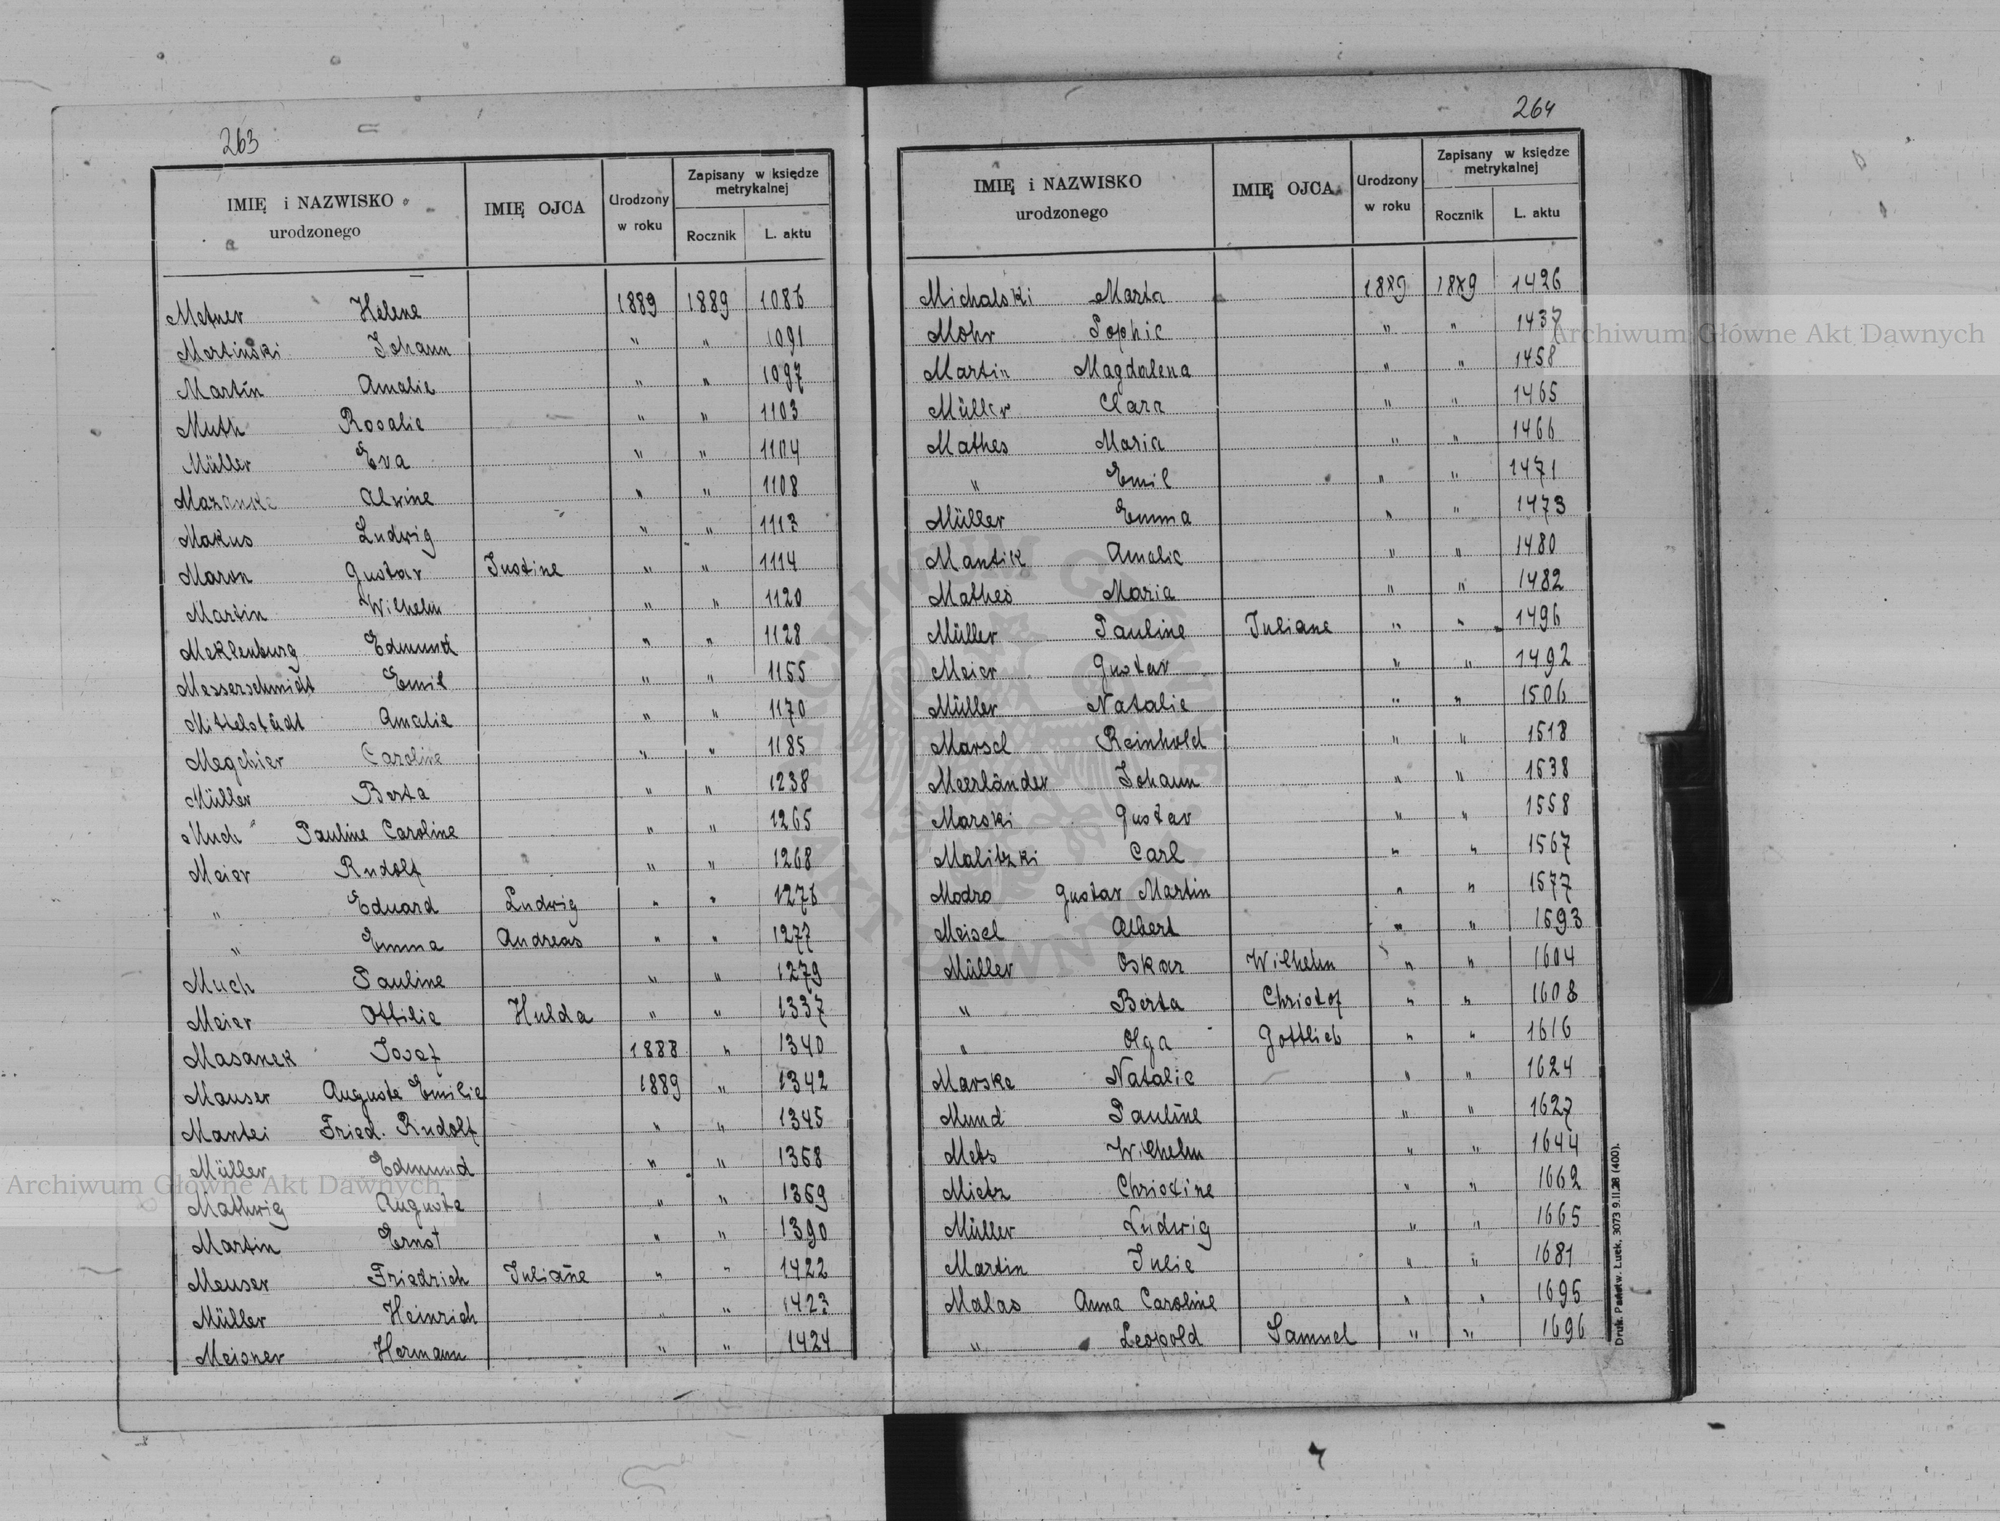 263
IMIĘ i NAZWISKO urodzonego IMIĘ OJCA Urodzony w roku Zapisany w księdze metrykalnej Rocznik L. aktu
Metner Helene 1889 1889 1086
Mertinski Johann " " 1091
Martin Amalie " " 1097
Muth Rosalie " " 1103
Müller Eva " " 1104
Alwine " " 1108
Makus Ludwig " " 1113
Maron Gustav Justine " " 1114
Martin Wilhelm " " 1120
Meklenburg Edmund " " 1128
Messerschmidt Emil " " 1155
Mittelstädt Amalie " " 1170
Megchier Caroline " " 1185
Müller Berta " " 1238
Much Pauline Caroline " " 1265
Meier Rudolf " " 1268
" Eduard Ludwig " " 1276
" Emma Andreas " " 1277
Much Pauline " " 1279
Meier Ottilie Hulda " " 1337
Masanek Josef 1888 " 1340
Mauser Auguste Emilie 1889 " 1342
Mantei Fried. Rudolf " " 1345
Müller Edmund " " 1368
Mathwig Auguste " " 1369
Martin Ernst " " 1390
Meuser Friedrich Juliane " " 1422
Müller Heinrich " " 1423
Meisner Hermann " " 1424
264
IMIĘ i NAZWISKO urodzonego IMIĘ OJCA Urodzony w roku Zapisany w księdze metrykalnej Rocznik L. aktu
Michalski Marta 1889 1889 1426
Mohr Sophie " " 1437
Martin Magdalena " " 1458
Müller Clara " " 1465
Mathes Maria " " 1466
" Emil " " 1471
Müller Emma " " 1473
Mantik Amalie " " 1480
Mathes Maria " " 1482
Müller Pauline Juliane " " 1496
Meier Gustav " " 1492
Müller Natalie " " 1506
Marsel Reinhold " " 1518
Meerländer Johann " " 1538
Marski Gustav " " 1558
Malitzki Carl " " 1567
Modro Gustav Martin " " 1577
Meisel Albert " " 1593
Müller Oskar Wilhelm " " 1604
" Berta Christof " " 1608
" Olga Gottlieb " " 1616
Marske Natalie " " 1624
Mund Pauline " " 1627
Mets Wilhelm " " 1644
Mietz Christine " " 1662
Müller Ludwig " " 1665
Martin Julie " " 1681
Malas Anna Caroline " " 1695
" Leopold Samuel " " 1696
Druk. Państw. Łuck, 3073 9.II.28 (400).
Archiwum Główne Akt Dawnych
Archiwum Główne Akt Dawnych
ARCHIWUM GŁÓWNE AKT DAWNYCH